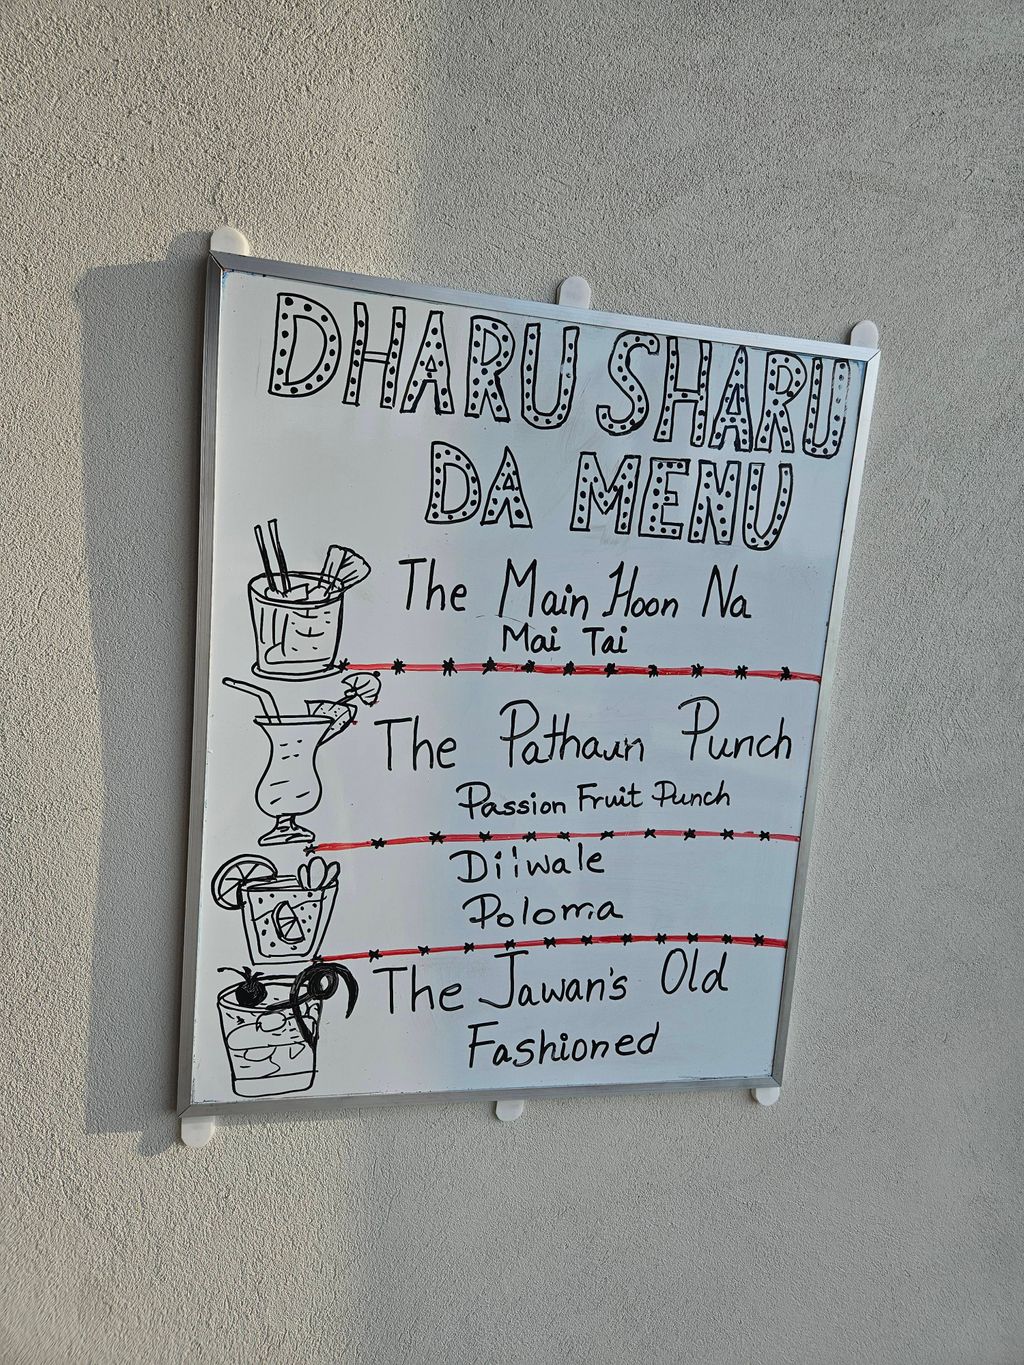 DHARU SHARU
DA MENU
The Main Hoon Na
Mai Tai
The Pathaan Punch
Passion Fruit Punch
Dilwale
Poloma
The Jawan's Old
Fashioned